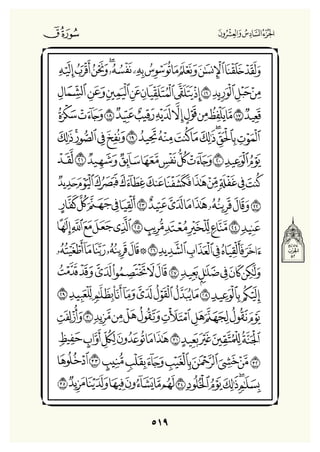 سُورَةُ قٓ
الجُزْءُ السَّادِسُ وَالعِشْرُونَ
وَلَقَدْ خَلَقْنَا ٱلْإِنسَٰنَ وَنَعْلَمُ مَا تُوَسْوِسُ بِهِۦ نَفْسُهُۥ ۖ وَنَحْنُ أَقْرَبُ إِلَيْهِ
مِنْ حَبْلِ ٱلْوَرِيدِ ١٦ إِذْ يَتَلَقَّى ٱلْمُتَلَقِّيَانِ عَنِ ٱلْيَمِينِ وَعَنِ ٱلشِّمَالِ
قَعِيدٌ ١٧ مَّا يَلْفِظُ مِن قَوْلٍ إِلَّا لَدَيْهِ رَقِيبٌ عَتِيدٌ ١٨ وَجَآءَتْ سَكْرَةُ
ٱلْمَوْتِ بِٱلْحَقِّ ۖ ذَٰلِكَ مَا كُنتَ مِنْهُ تَحِيدُ ١٩ وَنُفِخَ فِى ٱلصُّورِ ۚ ذَٰلِكَ
يَوْمُ ٱلْوَعِيدِ ٢٠ وَجَآءَتْ كُلُّ نَفْسٍ مَّعَهَا سَآئِقٌ وَشَهِيدٌ ٢١ لَّقَدْ
كُنتَ فِى غَفْلَةٍ مِّنْ هَٰذَا فَكَشَفْنَا عَنكَ غِطَآءَكَ فَبَصَرُكَ ٱلْيَوْمَ حَدِيدٌ
٢٢ وَقَالَ قَرِينُهُۥ هَٰذَا مَا لَدَىَّ عَتِيدٌ ٢٣ أَلْقِيَا فِى جَهَنَّمَ كُلَّ كَفَّارٍ
عَنِيدٍ ٢٤ مَّنَّاعٍ لِّلْخَيْرِ مُعْتَدٍ مُّرِيبٍ ٢٥ ٱلَّذِى جَعَلَ مَعَ ٱللَّهِ إِلَٰهًا
ءَاخَرَ فَأَلْقِيَاهُ فِى ٱلْعَذَابِ ٱلشَّدِيدِ ٢٦ ۞ قَالَ قَرِينُهُۥ رَبَّنَا مَآ أَطْغَيْتُهُۥ
وَلَٰكِن كَانَ فِى ضَلَٰلٍۭ بَعِيدٍ ٢٧ قَالَ لَا تَخْتَصِمُوا۟ لَدَىَّ وَقَدْ قَدَّمْتُ
إِلَيْكُم بِٱلْوَعِيدِ ٢٨ مَا يُبَدَّلُ ٱلْقَوْلُ لَدَىَّ وَمَآ أَنَا۠ بِظَلَّٰمٍ لِّلْعَبِيدِ ٢٩
يَوْمَ نَقُولُ لِجَهَنَّمَ هَلِ ٱمْتَلَأْتِ وَتَقُولُ هَلْ مِن مَّزِيدٍ ٣٠ وَأُزْلِفَتِ
ٱلْجَنَّةُ لِلْمُتَّقِينَ غَيْرَ بَعِيدٍ ٣١ هَٰذَا مَا تُوعَدُونَ لِكُلِّ أَوَّابٍ حَفِيظٍ
٣٢ مَّنْ خَشِىَ ٱلرَّحْمَٰنَ بِٱلْغَيْبِ وَجَآءَ بِقَلْبٍ مُّنِيبٍ ٣٣ ٱدْخُلُوهَا
بِسَلَٰمٍ ۖ ذَٰلِكَ يَوْمُ ٱلْخُلُودِ ٣٤ لَهُم مَّا يَشَآءُونَ فِيهَا وَلَدَيْنَا مَزِيدٌ ٣٥
٥١٩